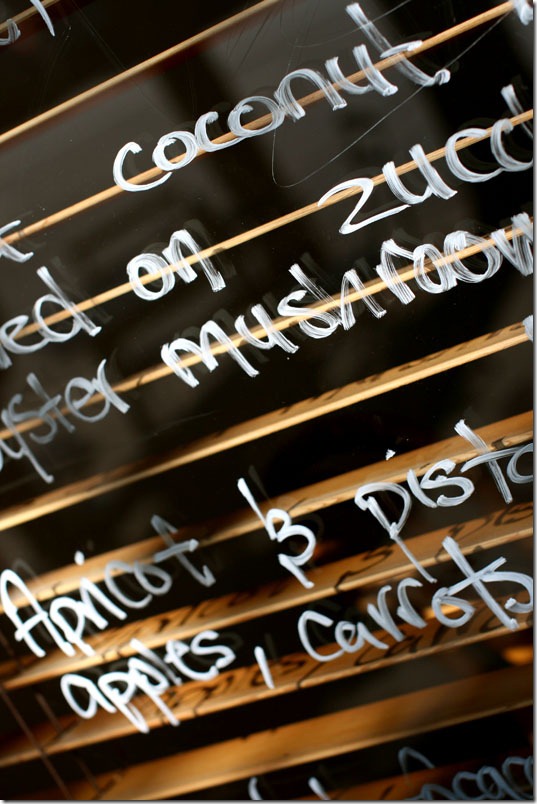 coconut
on zucc
oyster mushroom
Apricot & pista
apples, carrots